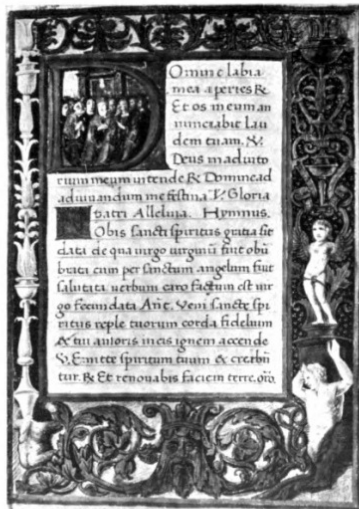 Omine labia
mea aperies ℟
Et os meum an
nunciabit lau
dem tuam. ℣.
Deus in adiuto
rium meum intende ℟ Domine ad
adiuuandum me festina ℣. Gloria
patri Alleluia. Hymnus.
Obis sancti spiritus gratia sit
data de qua uirgo uirginū fuit obū
brata cum per sanctum angelum fuit
salutata uerbum caro factum est uir
go fecundata Añt. Veni sancte spi
ritus reple tuorum corda fidelium
& tui amoris in eis ignem accende
℣. Emitte spiritum tuum & creabūn
tur. ℟ Et renouabis faciem terre. oro.